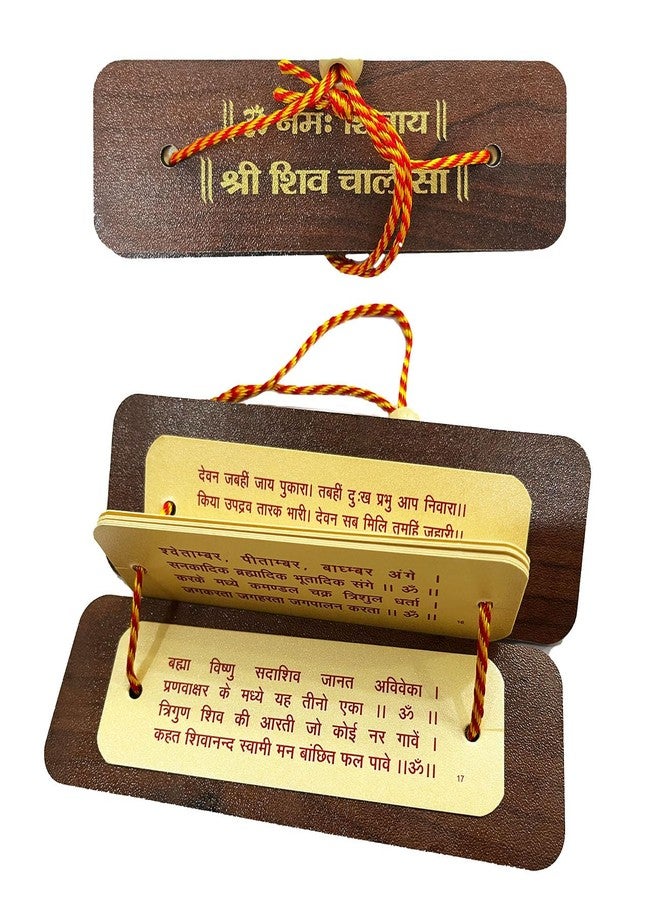 ॥ ॐ नमः शिवाय ॥
॥ श्री शिव चालीसा ॥
देवन जबहीं जाय पुकारा। तबहीं दुःख प्रभु आप निवारा॥
किया उपद्रव तारक भारी। देवन सब मिलि तुमहिं जुहारी॥
श्वेताम्बर, पीताम्बर, बाघम्बर अंगे ।
सनकादिक ब्रह्मादिक भूतादिक संगे ॥ ॐ ॥
करके मध्ये कमण्डल चक्र त्रिशुल धर्ता ।
जगकरता जगहरता जगपालन करता ॥ ॐ ॥
16
ब्रह्मा विष्णु सदाशिव जानत अविवेका ।
प्रणवाक्षर के मध्ये यह तीनो एका ॥ ॐ ॥
त्रिगुण शिव की आरती जो कोई नर गावें ।
कहत शिवानन्द स्वामी मन बांछित फल पावे ॥ॐ॥
17